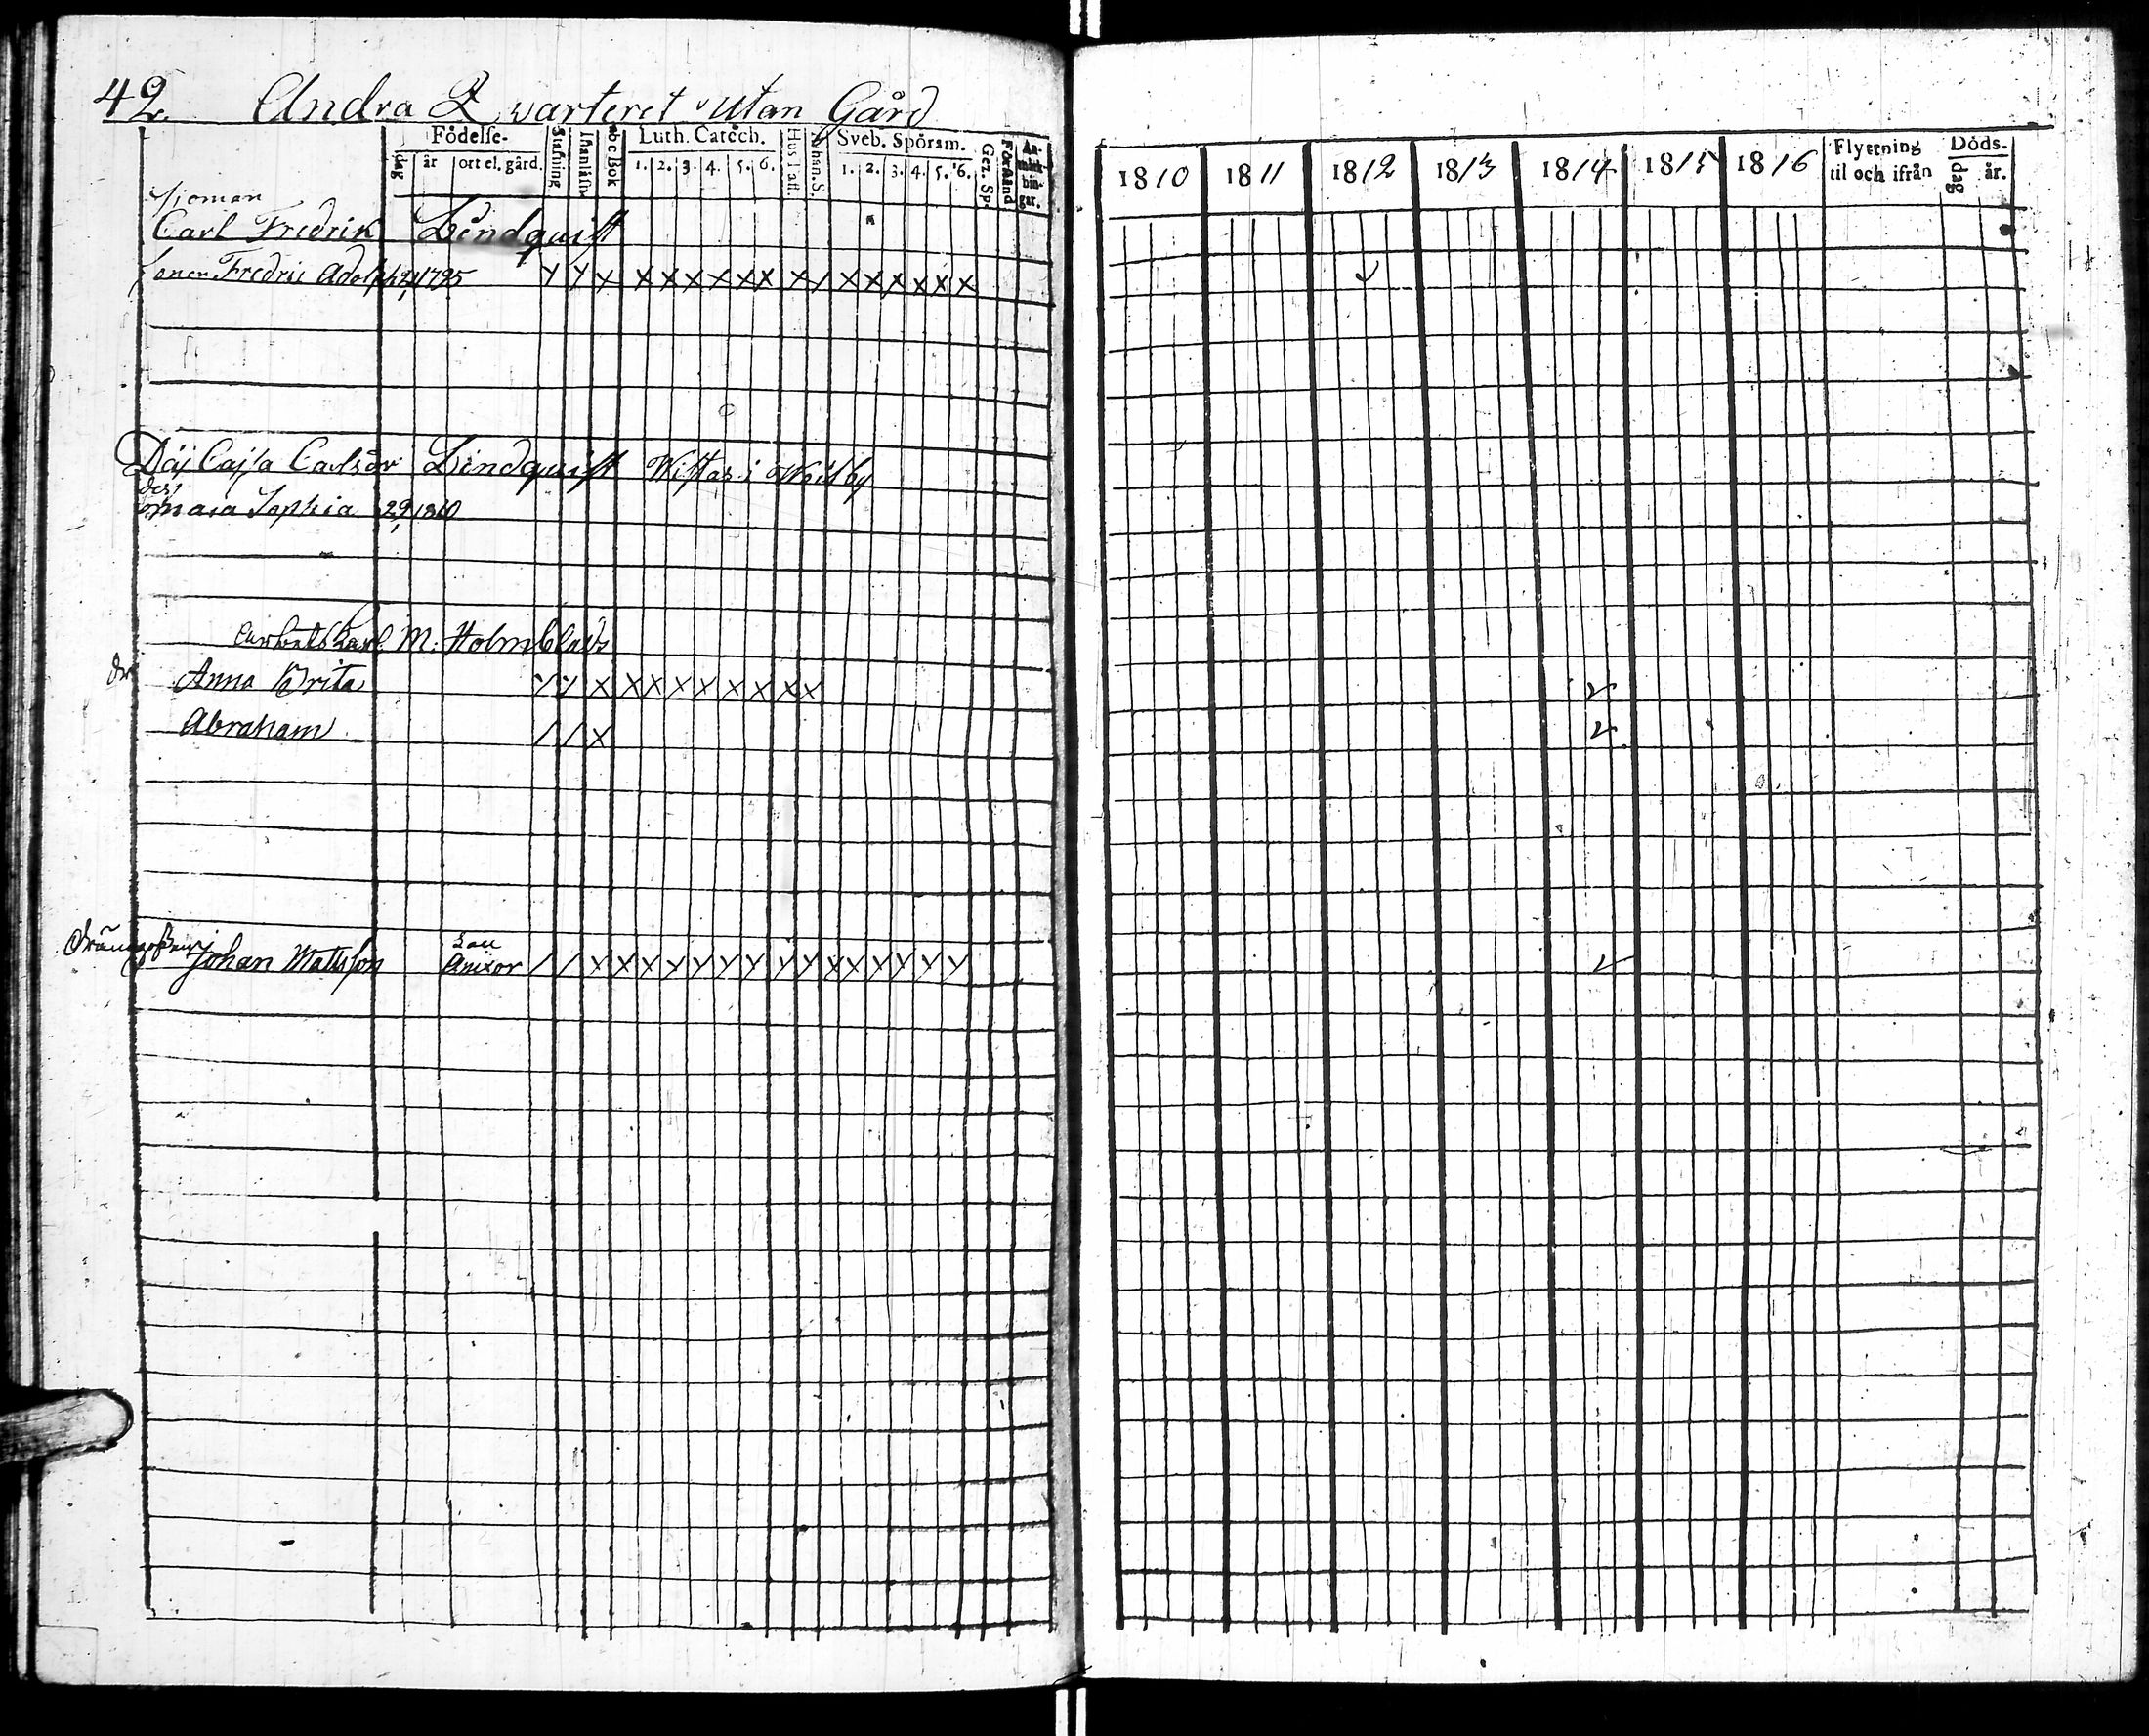 42. Andra Qvarteret utan Gård
Födelse- Stafning Innanläsn. Abc Bok Luth. Catech. Hus Tafl. Athan. S. Sveb. Spörsm. Gez. Sp. Förstånd An-märk-nin-gar.
dag år ort el. gård. 1. 2. 3. 4. 5. 6. 1. 2. 3. 4. 5. 6.
1810 1811 1812 1813 1814 1815 1816 Flyttning til och ifrån Döds- dag år.
Sjöman
Carl Fredrik Lindquist
Fredric Adolph 1795
Cajsa Carlsdr Lindquist Wistas i
Maria Sophia 29 1810
arbetskarl M. Holmblads
dr Anna Brita
Abraham
Johan Mattsson